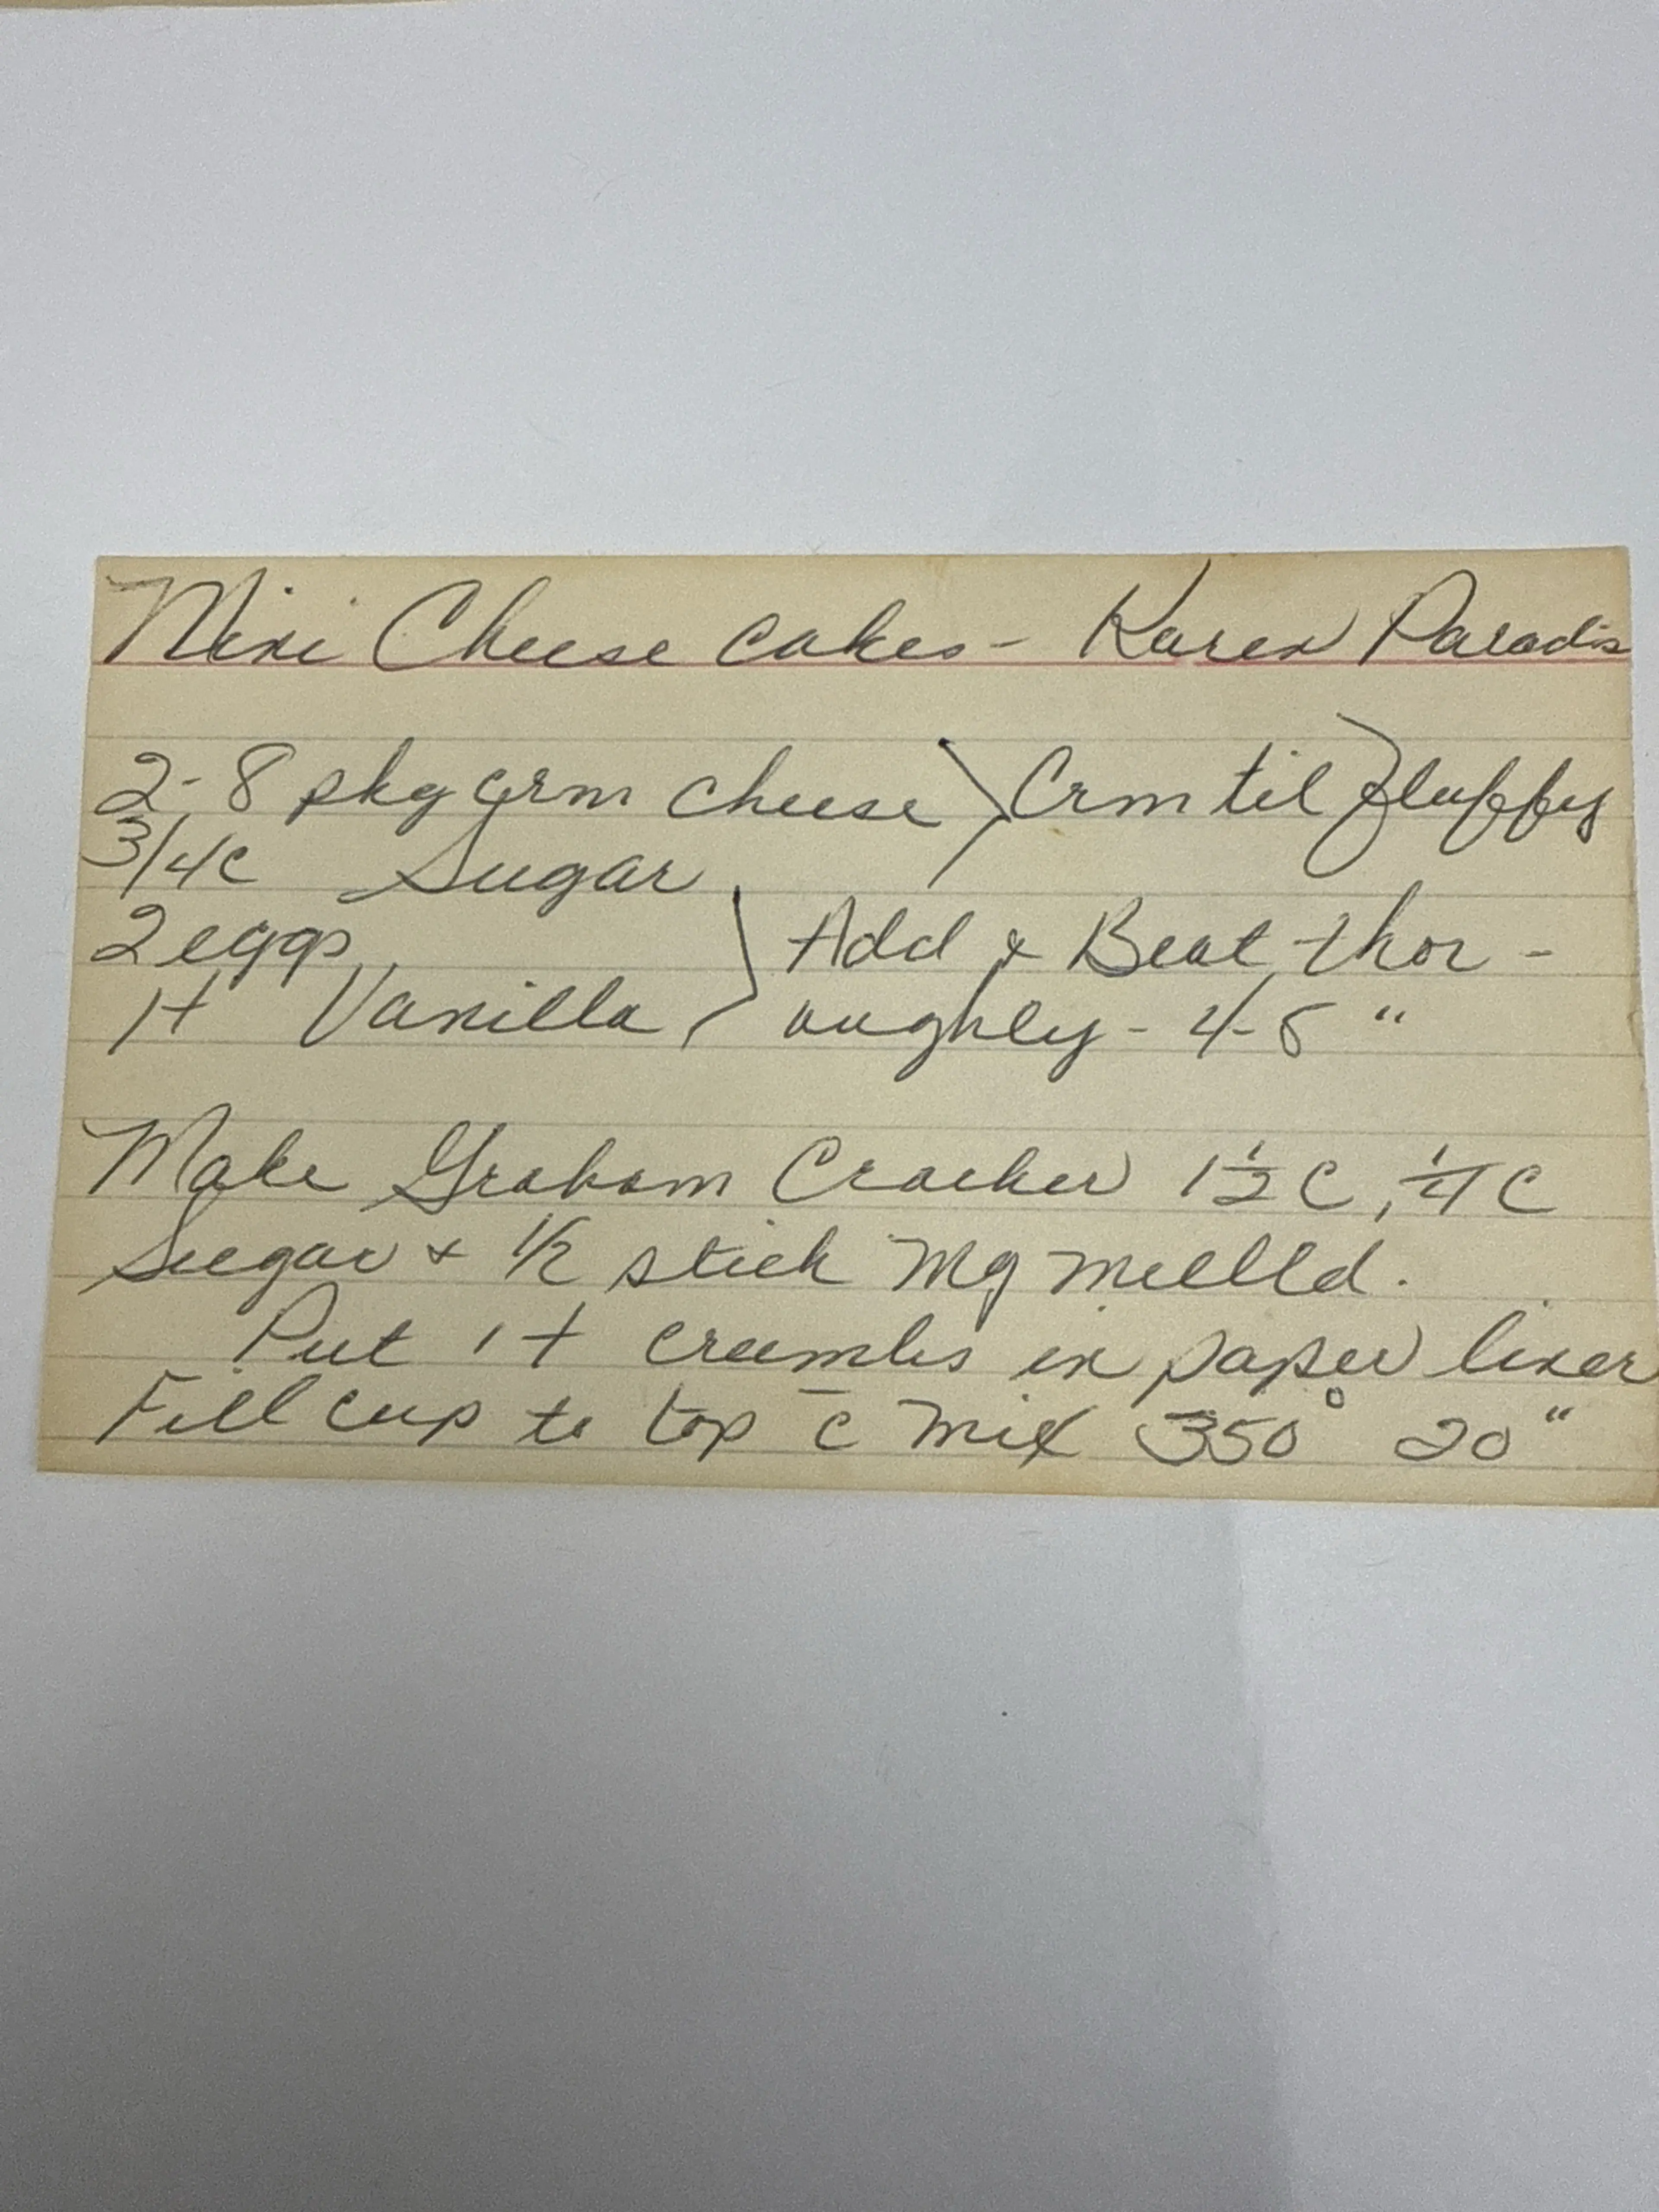 Mini Cheese cakes - Karen Paradis
2-8 pkg crm cheese } Crm til fluffy
3/4c Sugar
2 eggs } Add & Beat thor-
1t Vanilla } oughly - 4-5 "
Make Graham Cracker 1 1/2 C, 1/4 C
Sugar & 1/2 stick Mg melted.
Put 1t crumbs in paper liner
Fill cup to top c̄ mix 350° 20"